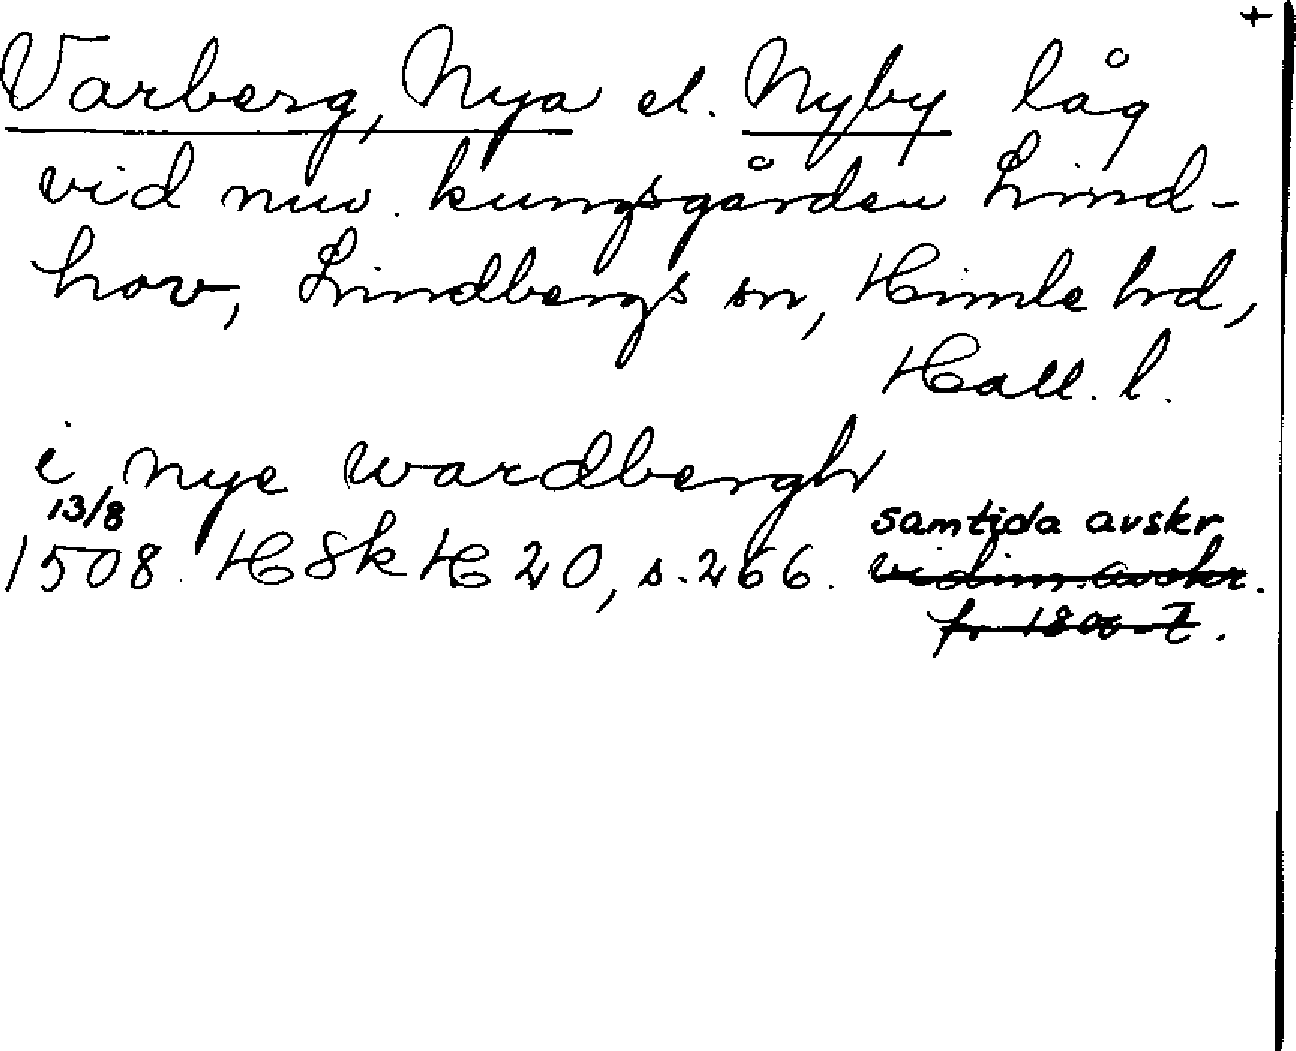 +
Varberg, Nya el. Nyby låg
vid nuv. kungsgården Lind-
hov, Lindbergs sn, Himle hd,
Hall. l.
i nye wardbergh
13/8
1508. HSkH 20, s. 266. samtida avskr
vidim. avskr.
fr 1800-t.